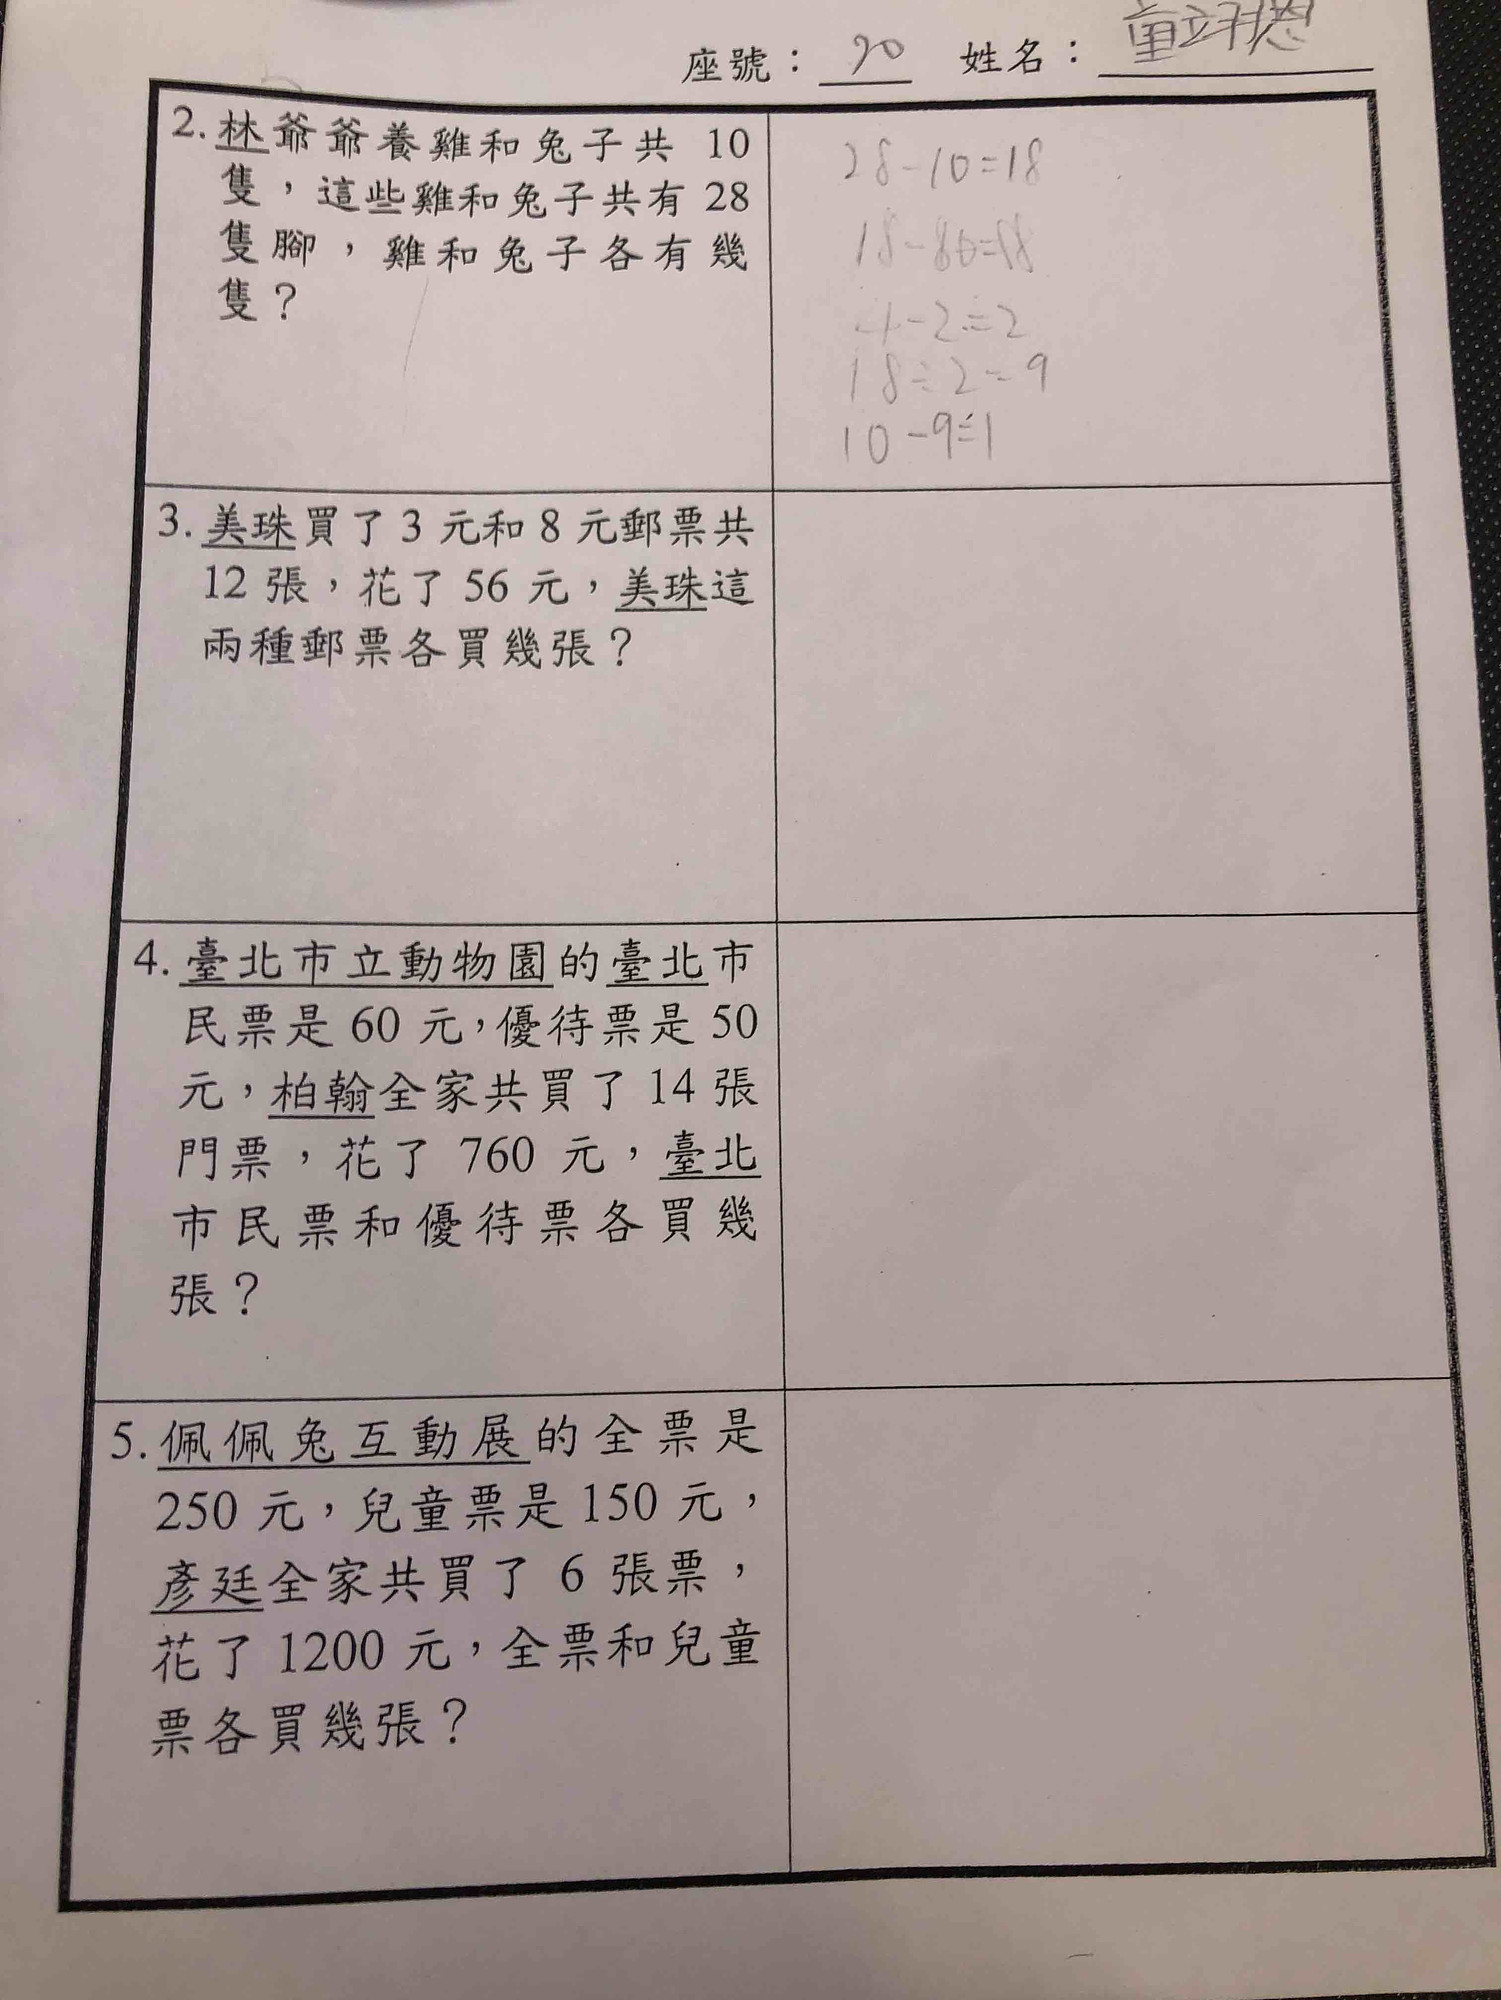 座號：20 姓名：童立翔
2. 林爺爺養雞和兔子共 10
隻，這些雞和兔子共有 28
隻腳，雞和兔子各有幾
隻？
28-10=18
4-2=2
18÷2=9
10-9=1
3. 美珠買了 3 元和 8 元郵票共
12 張，花了 56 元，美珠這
兩種郵票各買幾張？
4. 臺北市立動物園的臺北市
民票是 60 元，優待票是 50
元，柏翰全家共買了 14 張
門票，花了 760 元，臺北
市民票和優待票各買幾
張？
5. 佩佩兔互動展的全票是
250 元，兒童票是 150 元，
彥廷全家共買了 6 張票，
花了 1200 元，全票和兒童
票各買幾張？